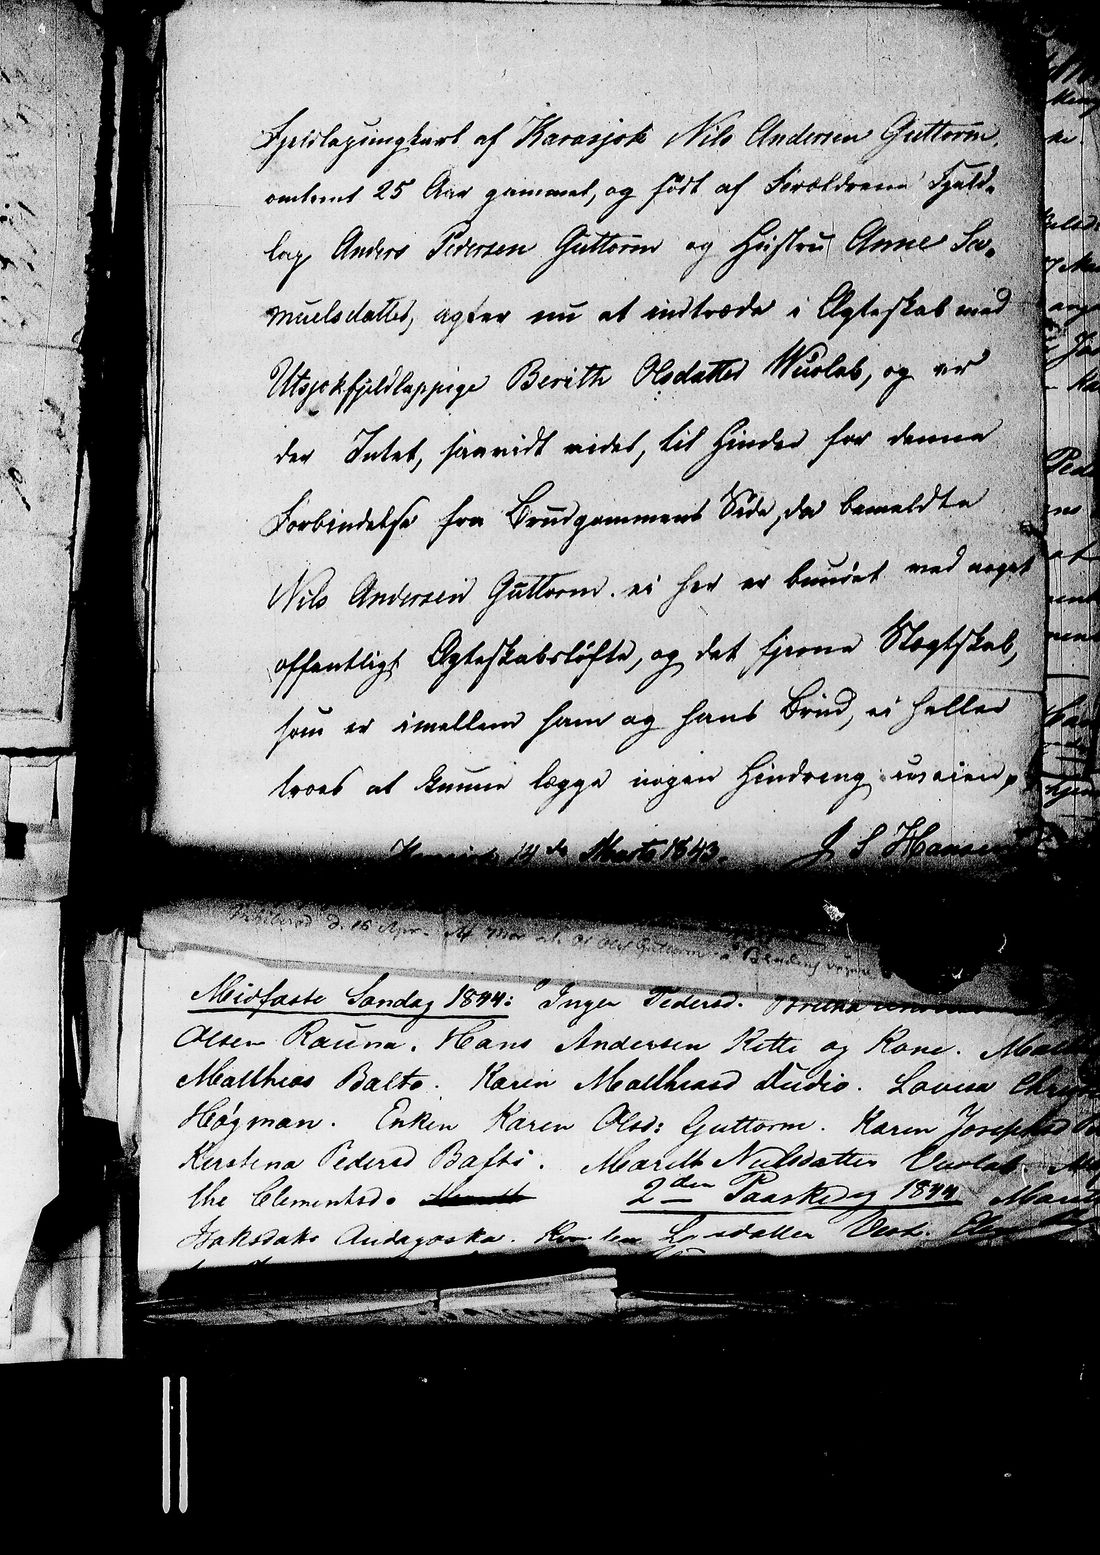 Fjeldlapungkarl af Karasjok Nils Andersen Guttorm,
omtrent 25 Aar gammel, og født af Forældrene Fjeld-
lap Anders Pedersen Guttorm og Hustru Anne Sa-
muelsdatter, agter nu at indtræde i Ægteskab med
Utsjokfjeldlappige Berith Olsdatter Wuolab, og er
der Intet, saavidt vides, til Hinder for denne
Forbindelse fra Brudgommens Side, da bemeldte
Nils Andersen Guttorm ei her er bundet ved noget
offentligt Ægteskabsløfte, og det fjerne Slægtskab,
som er imellem ham og hans Brud, ei heller
troes at kunne lægge nogen Hindring iveien,
14de Marts 1843. J S Hansen
d. 16 Apr. Guttorm
Midfaste Søndag 1844: Inger Pedersd.
Olsen Rauna. Hans Andersen Kitti og Kone.
Matthias Balto. Karin Matthiasd Lovisa
Högman. Enken Karen Olsd: Guttorm. Karen Josephsd
Kerstina Pedersd Marith Nielsdatter Vuolab.
the Clementsd. 2den Paaskedag 1844